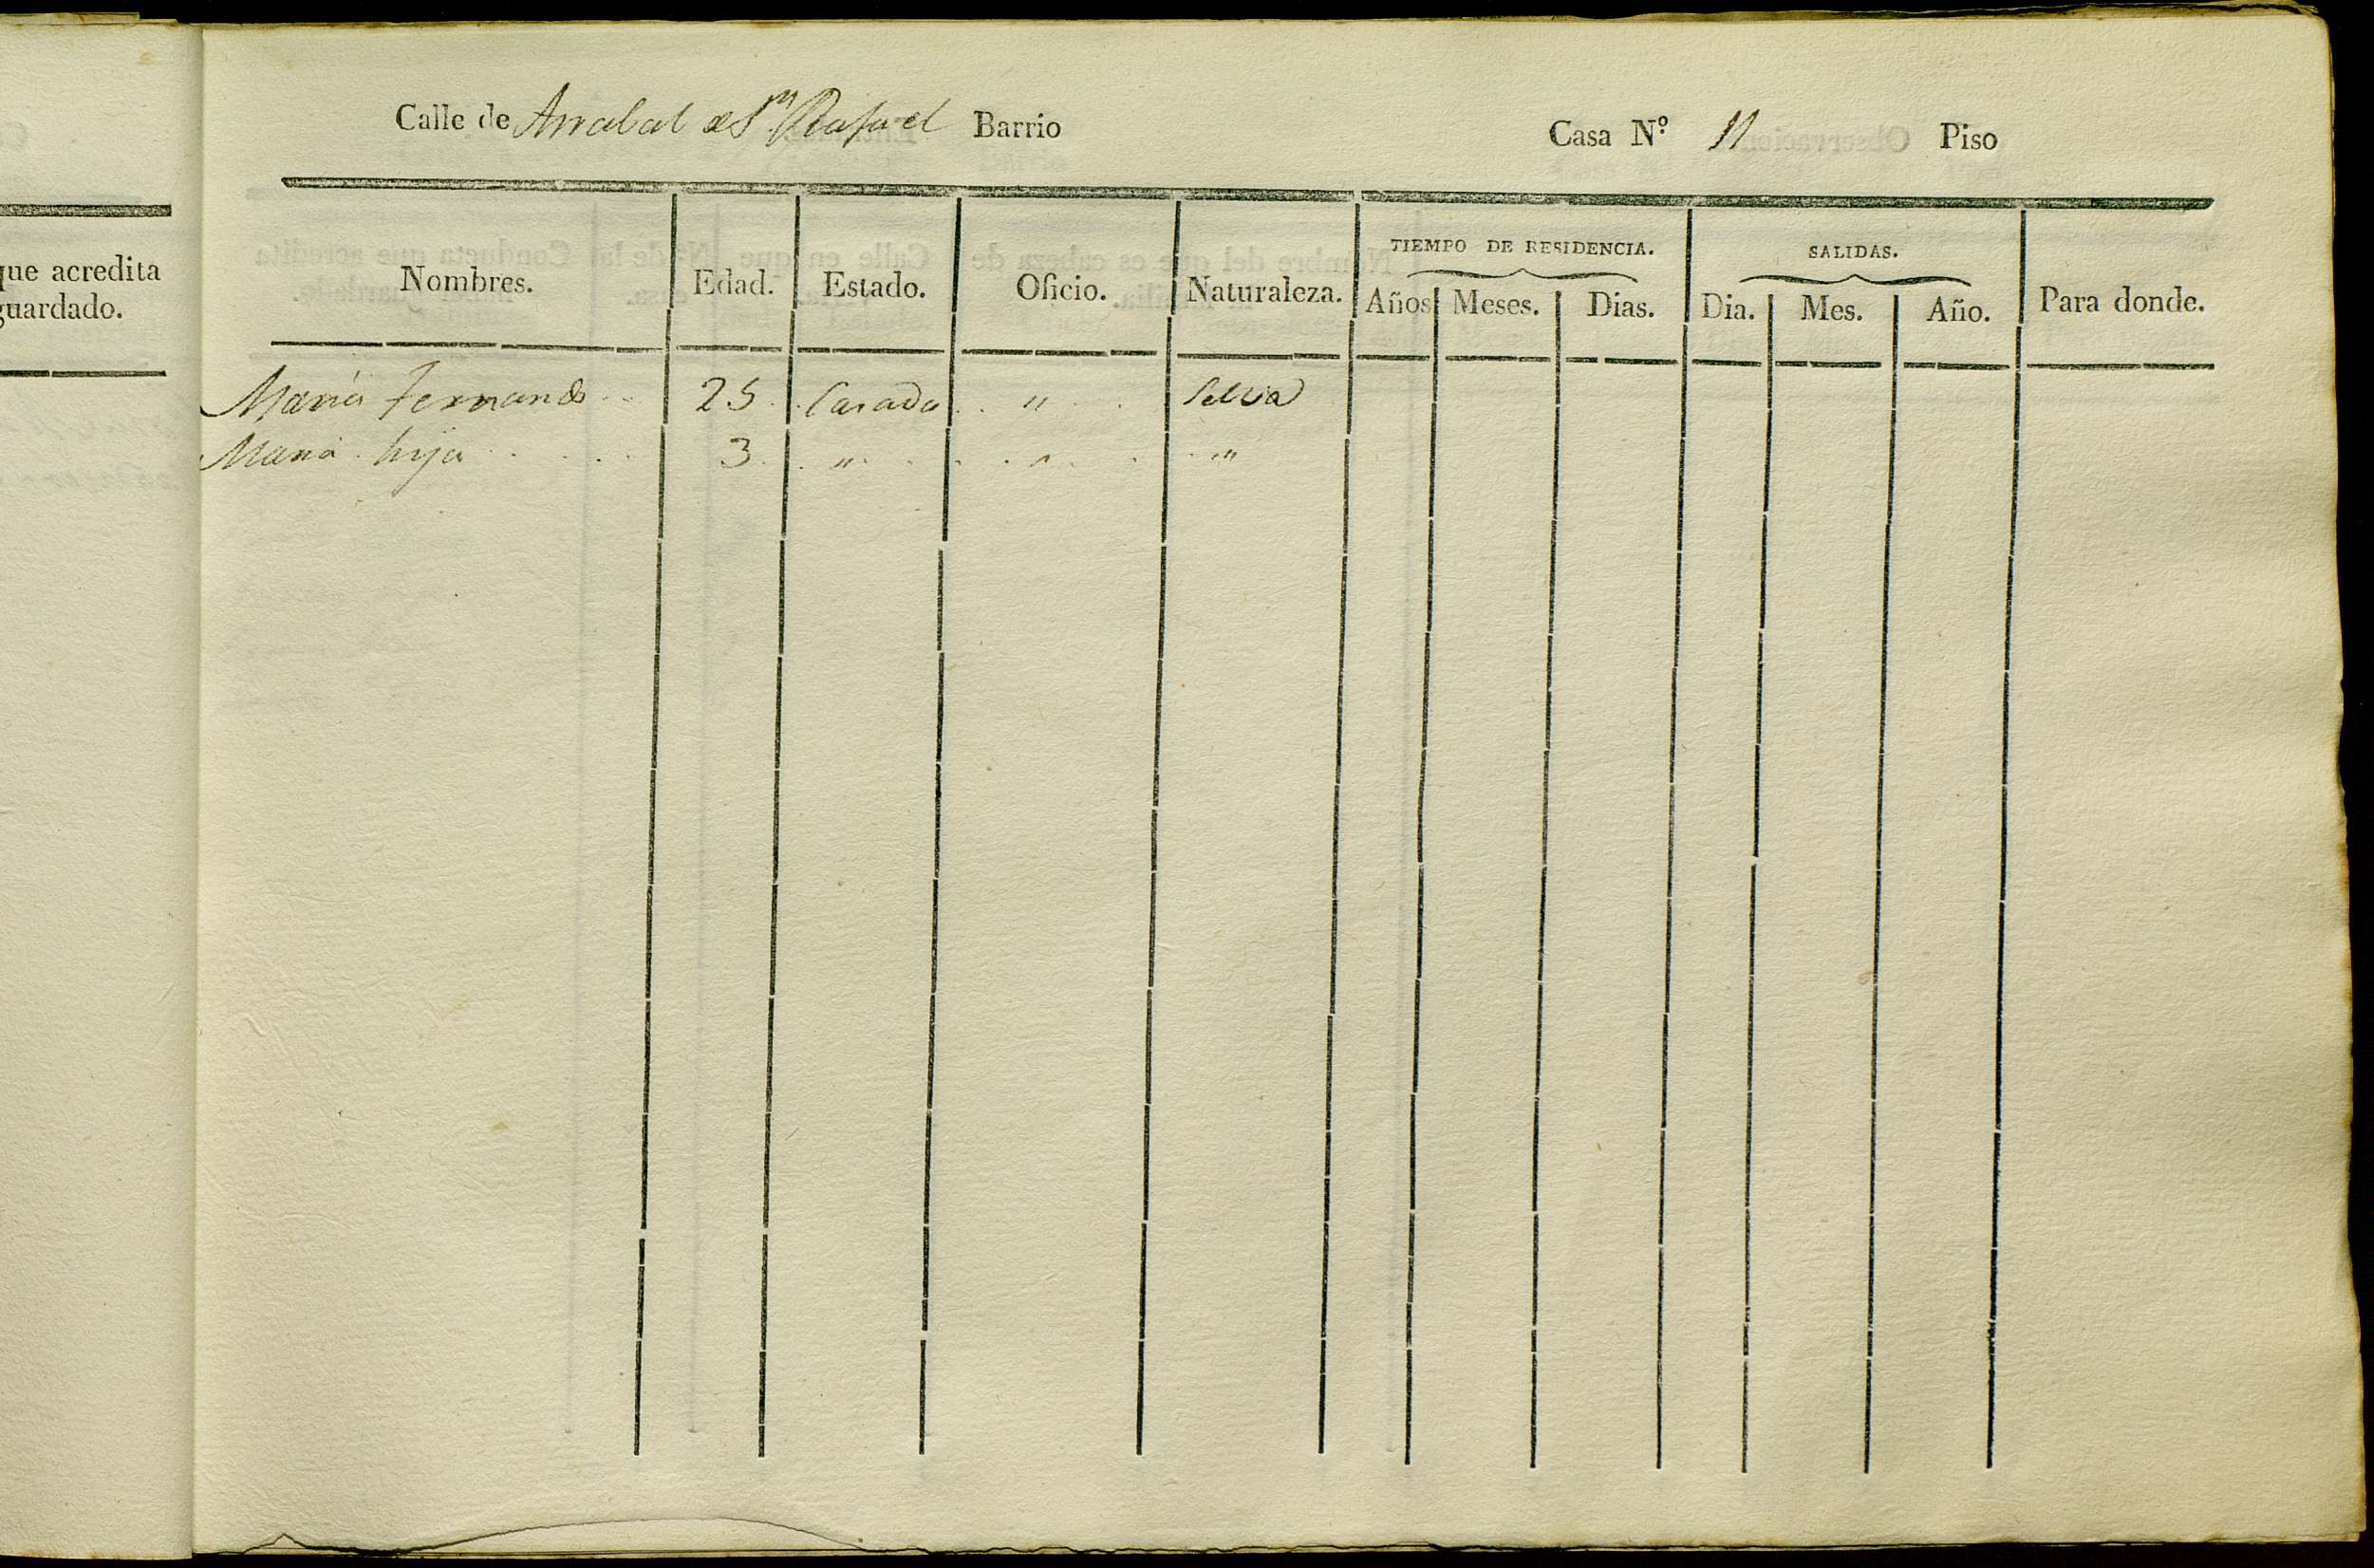 Calle de Arrabal de Sn Rafael Barrio Casa N.º 11 Piso
que acredita
guardado.
TIEMPO DE RESIDENCIA. SALIDAS.
Nombres. Edad. Estado. Oficio. Naturaleza. Años Meses. Dias. Dia. Mes. Año. Para donde.
Maria Fernando 25 Casada " Selva
Maria hija 3 " " "